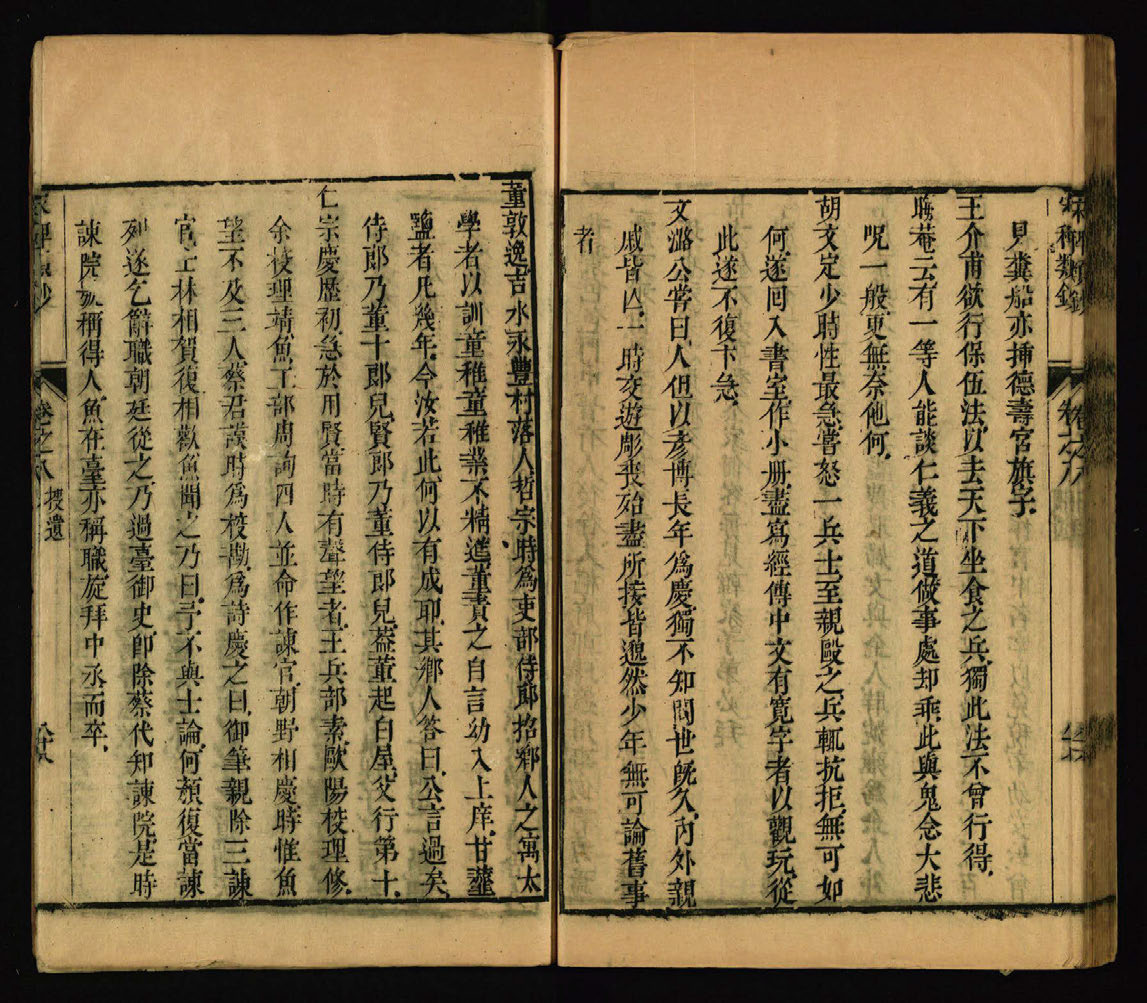 宋稗類鈔
卷之八
見糞船亦插德壽宮旗子
王介甫欲行保伍法以去天下坐食之兵獨此法不曾行得
晦菴云有一等人能談仁義之道做事處却乖此與鬼念大悲
呪一般更無奈他何
胡文定少時性最急嘗怒一兵士至親毆之兵輒抗拒無可如
何遂回入書室作小册盡寫經傳中文有寬字者以觀玩從
此遂不復卞急
文潞公嘗曰人但以彥博長年爲慶獨不知閱世旣久內外親
戚皆亾一時交遊彫喪殆盡所接皆邈然少年無可論舊事
者
董敦逸吉水永豐村落人哲宗時爲吏部侍郎招鄉人之寓太
學者以訓童稚童稚業不精進董責之自言幼入上庠甘虀
鹽者凡幾年今汝若此何以有成耶其鄉人答曰公言過矣
侍郎乃董十郎兒賢郎乃董侍郎兒葢董起白屋父行第十
仁宗慶歷初急於用賢當時有聲望者王兵部素歐陽校理修
余校理靖魚工部周詢四人並命作諫官朝野相慶時惟魚
望不及三人蔡君謨時爲校勘爲詩慶之曰御筆親除三諫
官士林相賀復相歡魚聞之乃曰予不與士論何顏復當諫
列遂乞辭職朝廷從之乃過臺御史卽除蔡代知諫院是時
諫院號稱得人魚在臺亦稱職旋拜中丞而卒
卷之八 搜遺